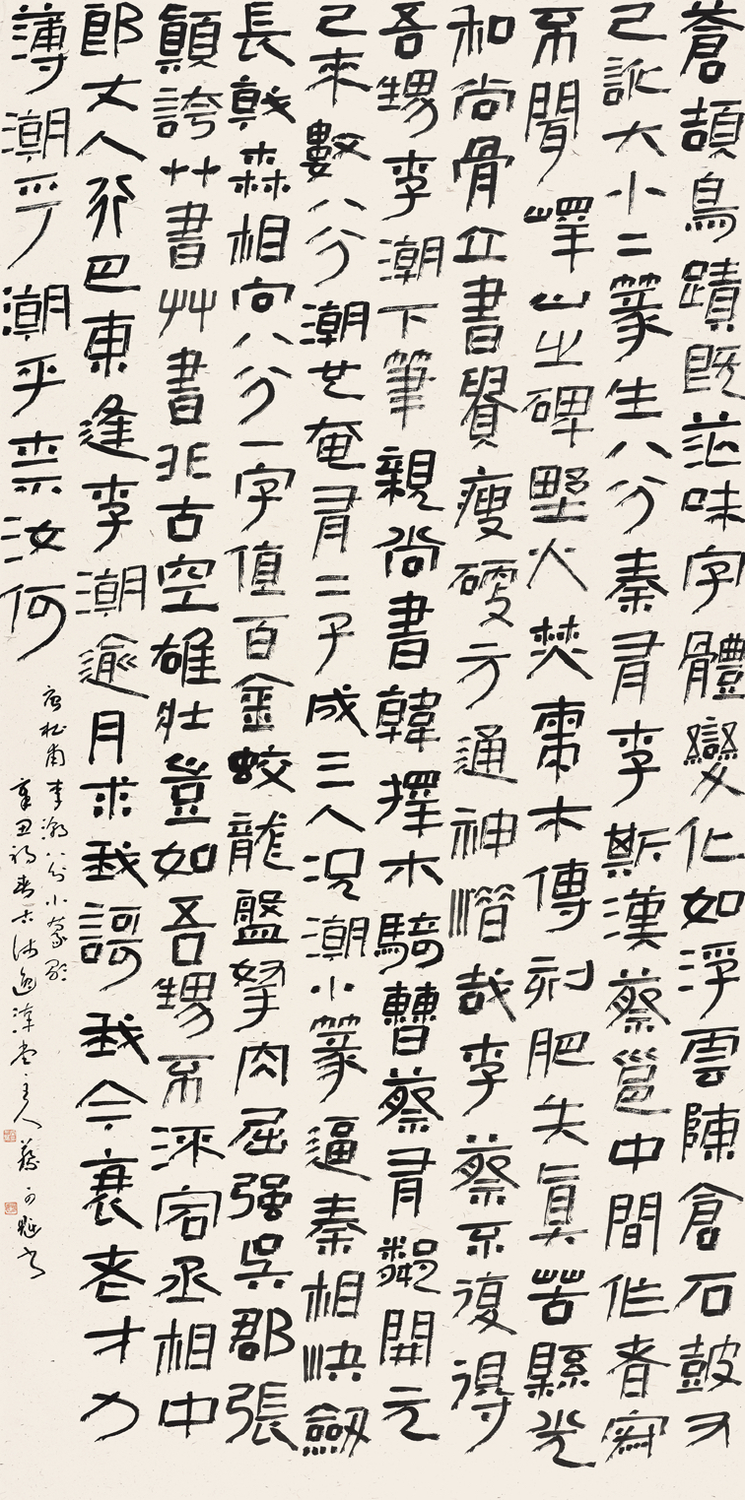 蒼頡鳥蹟既茫昧字體變化如浮雲陳倉石鼓又
已訛大小二篆生八分秦有李斯漢蔡邕中間作者寂
不聞嶧山之碑野火焚棗木傳刻肥失真苦縣光
和尚骨立書貴瘦硬方通神惜哉李蔡不復得
吾甥李潮下筆親尚書韓擇木騎曹蔡有鄰開元
已來數八分潮也奄有二子成三人況潮小篆逼秦相快劍
長戟森相向八分一字值百金蛟龍盤拏肉屈強吳郡張
顛誇艸書艸書非古空雄壯豈如吾甥不流宕丞相中
郎丈人行巴東逢李潮逾月求我歌我今衰老才力
薄潮乎潮乎柰汝何
唐杜甫李潮八分小篆歌
辛丑初春古堂主人